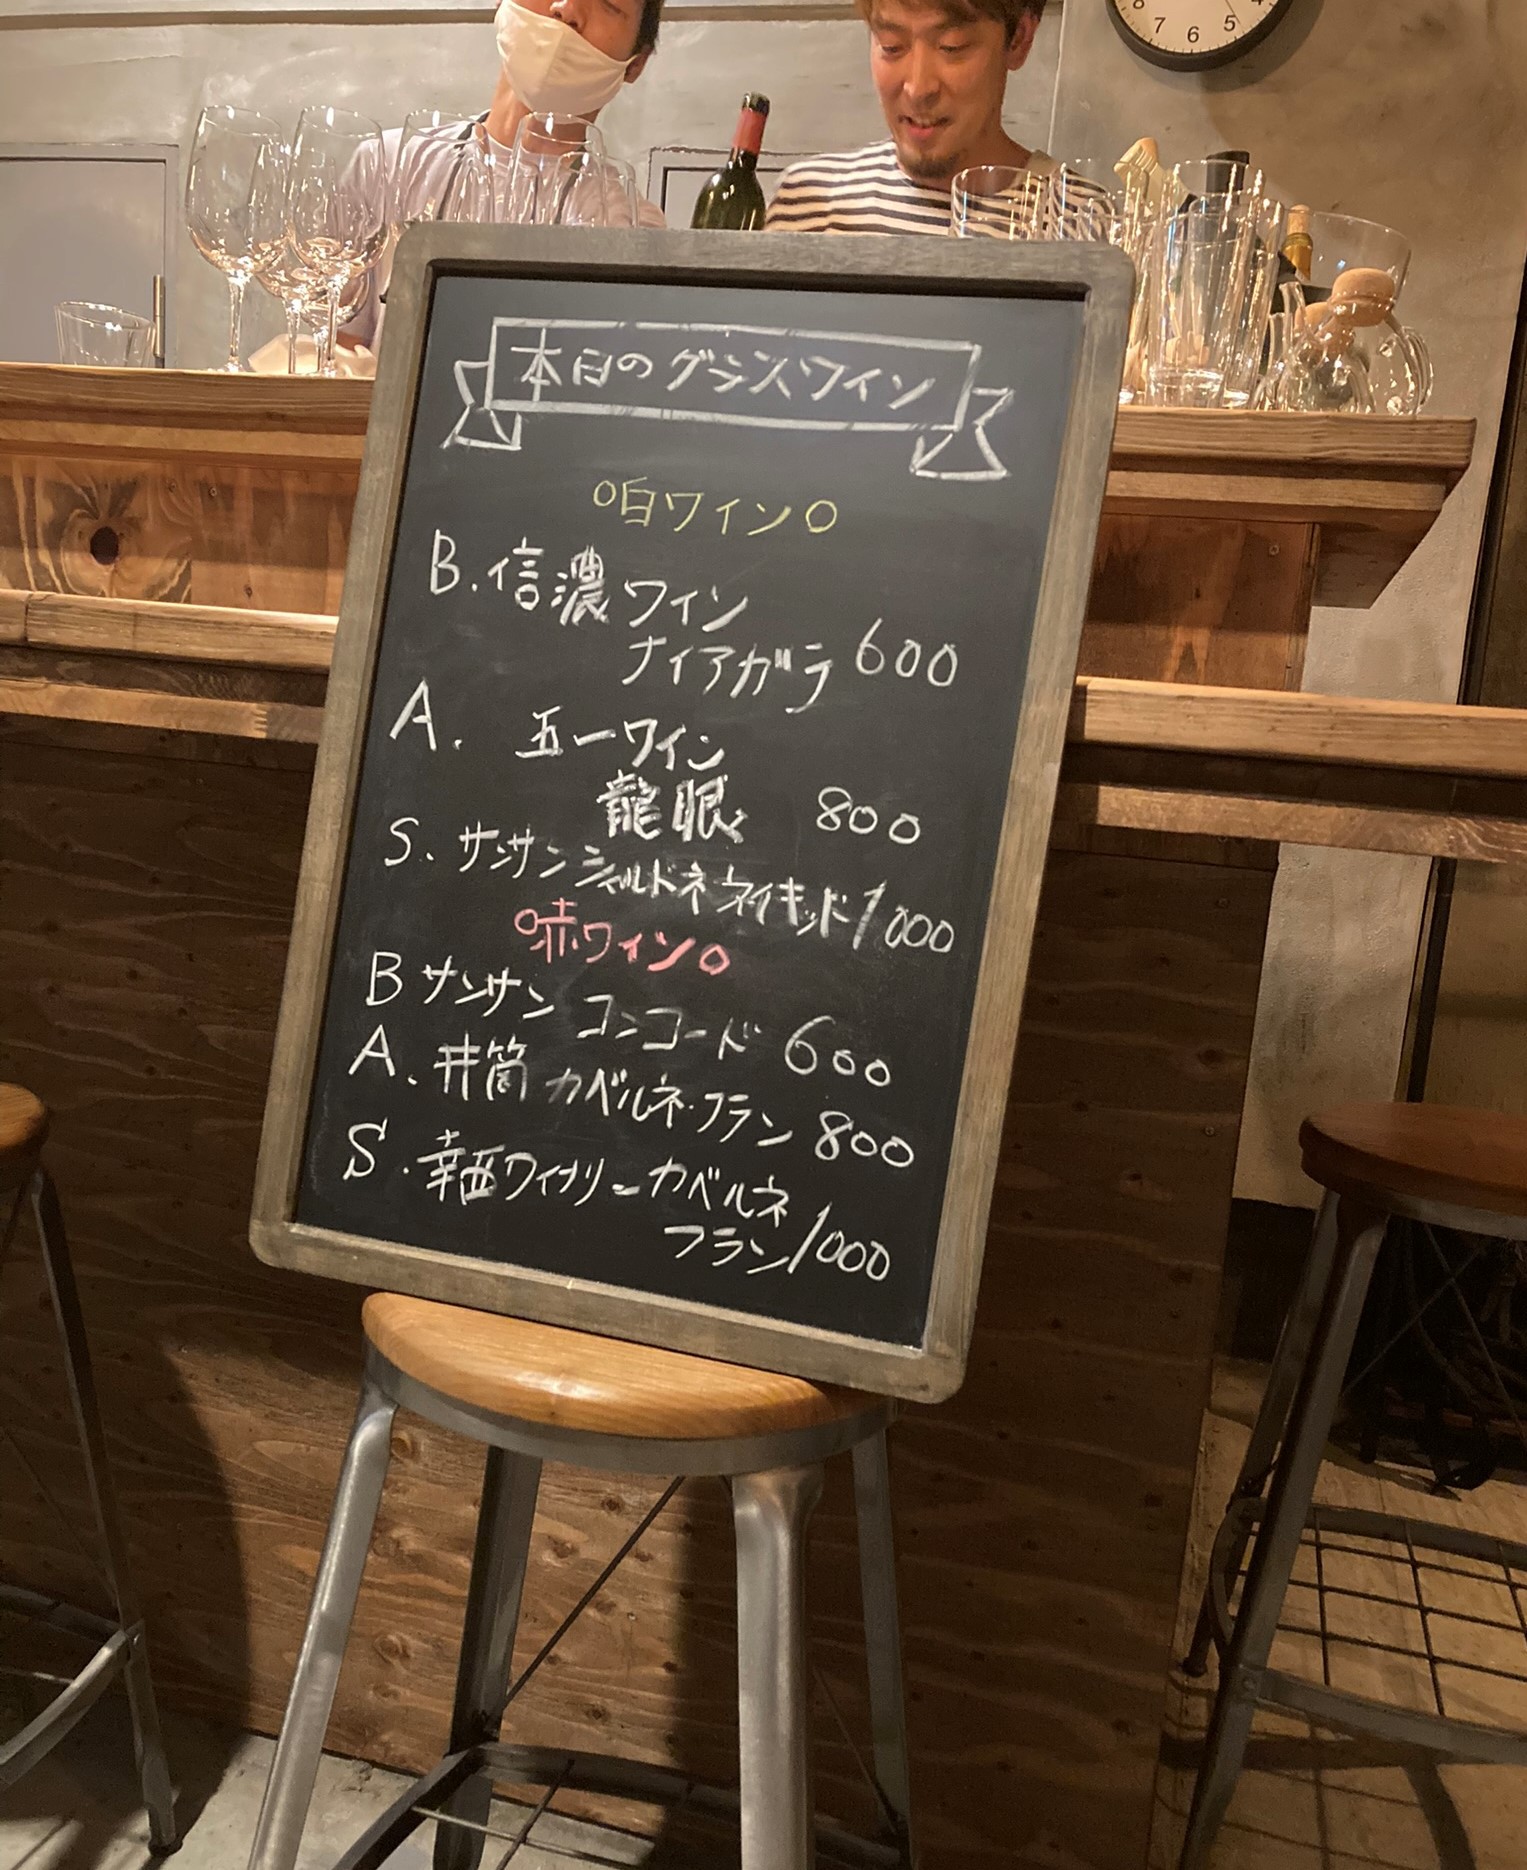 本日のグラスワイン
○白ワイン○
B. 信濃ワイン
ナイアガラ 600
A. 五一ワイン
龍眼 800
S. サンサンシャルドネネイキッド 1000
○赤ワイン○
B サンサン コンコード 600
A. 井筒 カベルネ・フラン 800
S. 幸西ワイナリー カベルネ
フラン 1000
8 7 6 5 4